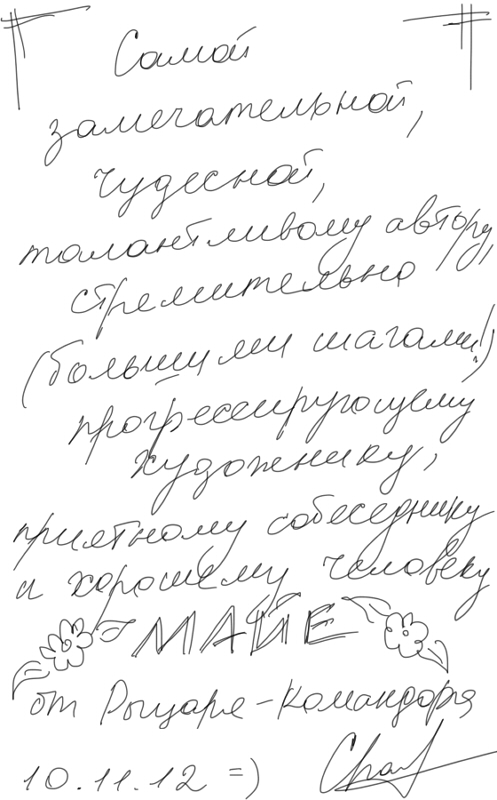 Самой
замечательной,
чудесной,
талантливому автору,
стремительно
(большими шагами!)
прогрессирующему
художнику,
приятному собеседнику
и хорошему человеку
МАЙЕ
от Рыцаря-Командора
10.11.12 =)